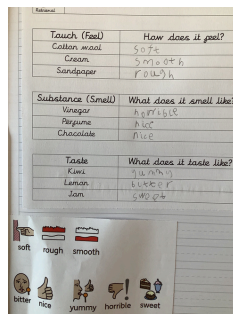 Rational
Touch (Feel) How does it feel?
Cotton wool soft
Cream smooth
Sandpaper rough
Substance (Smell) What does it smell like?
Vinegar horrible
Perfume nice
Chocolate nice
Taste What does it taste like?
Kiwi yummy
Lemon bitter
Jam sweet
soft rough smooth
bitter nice yummy horrible sweet